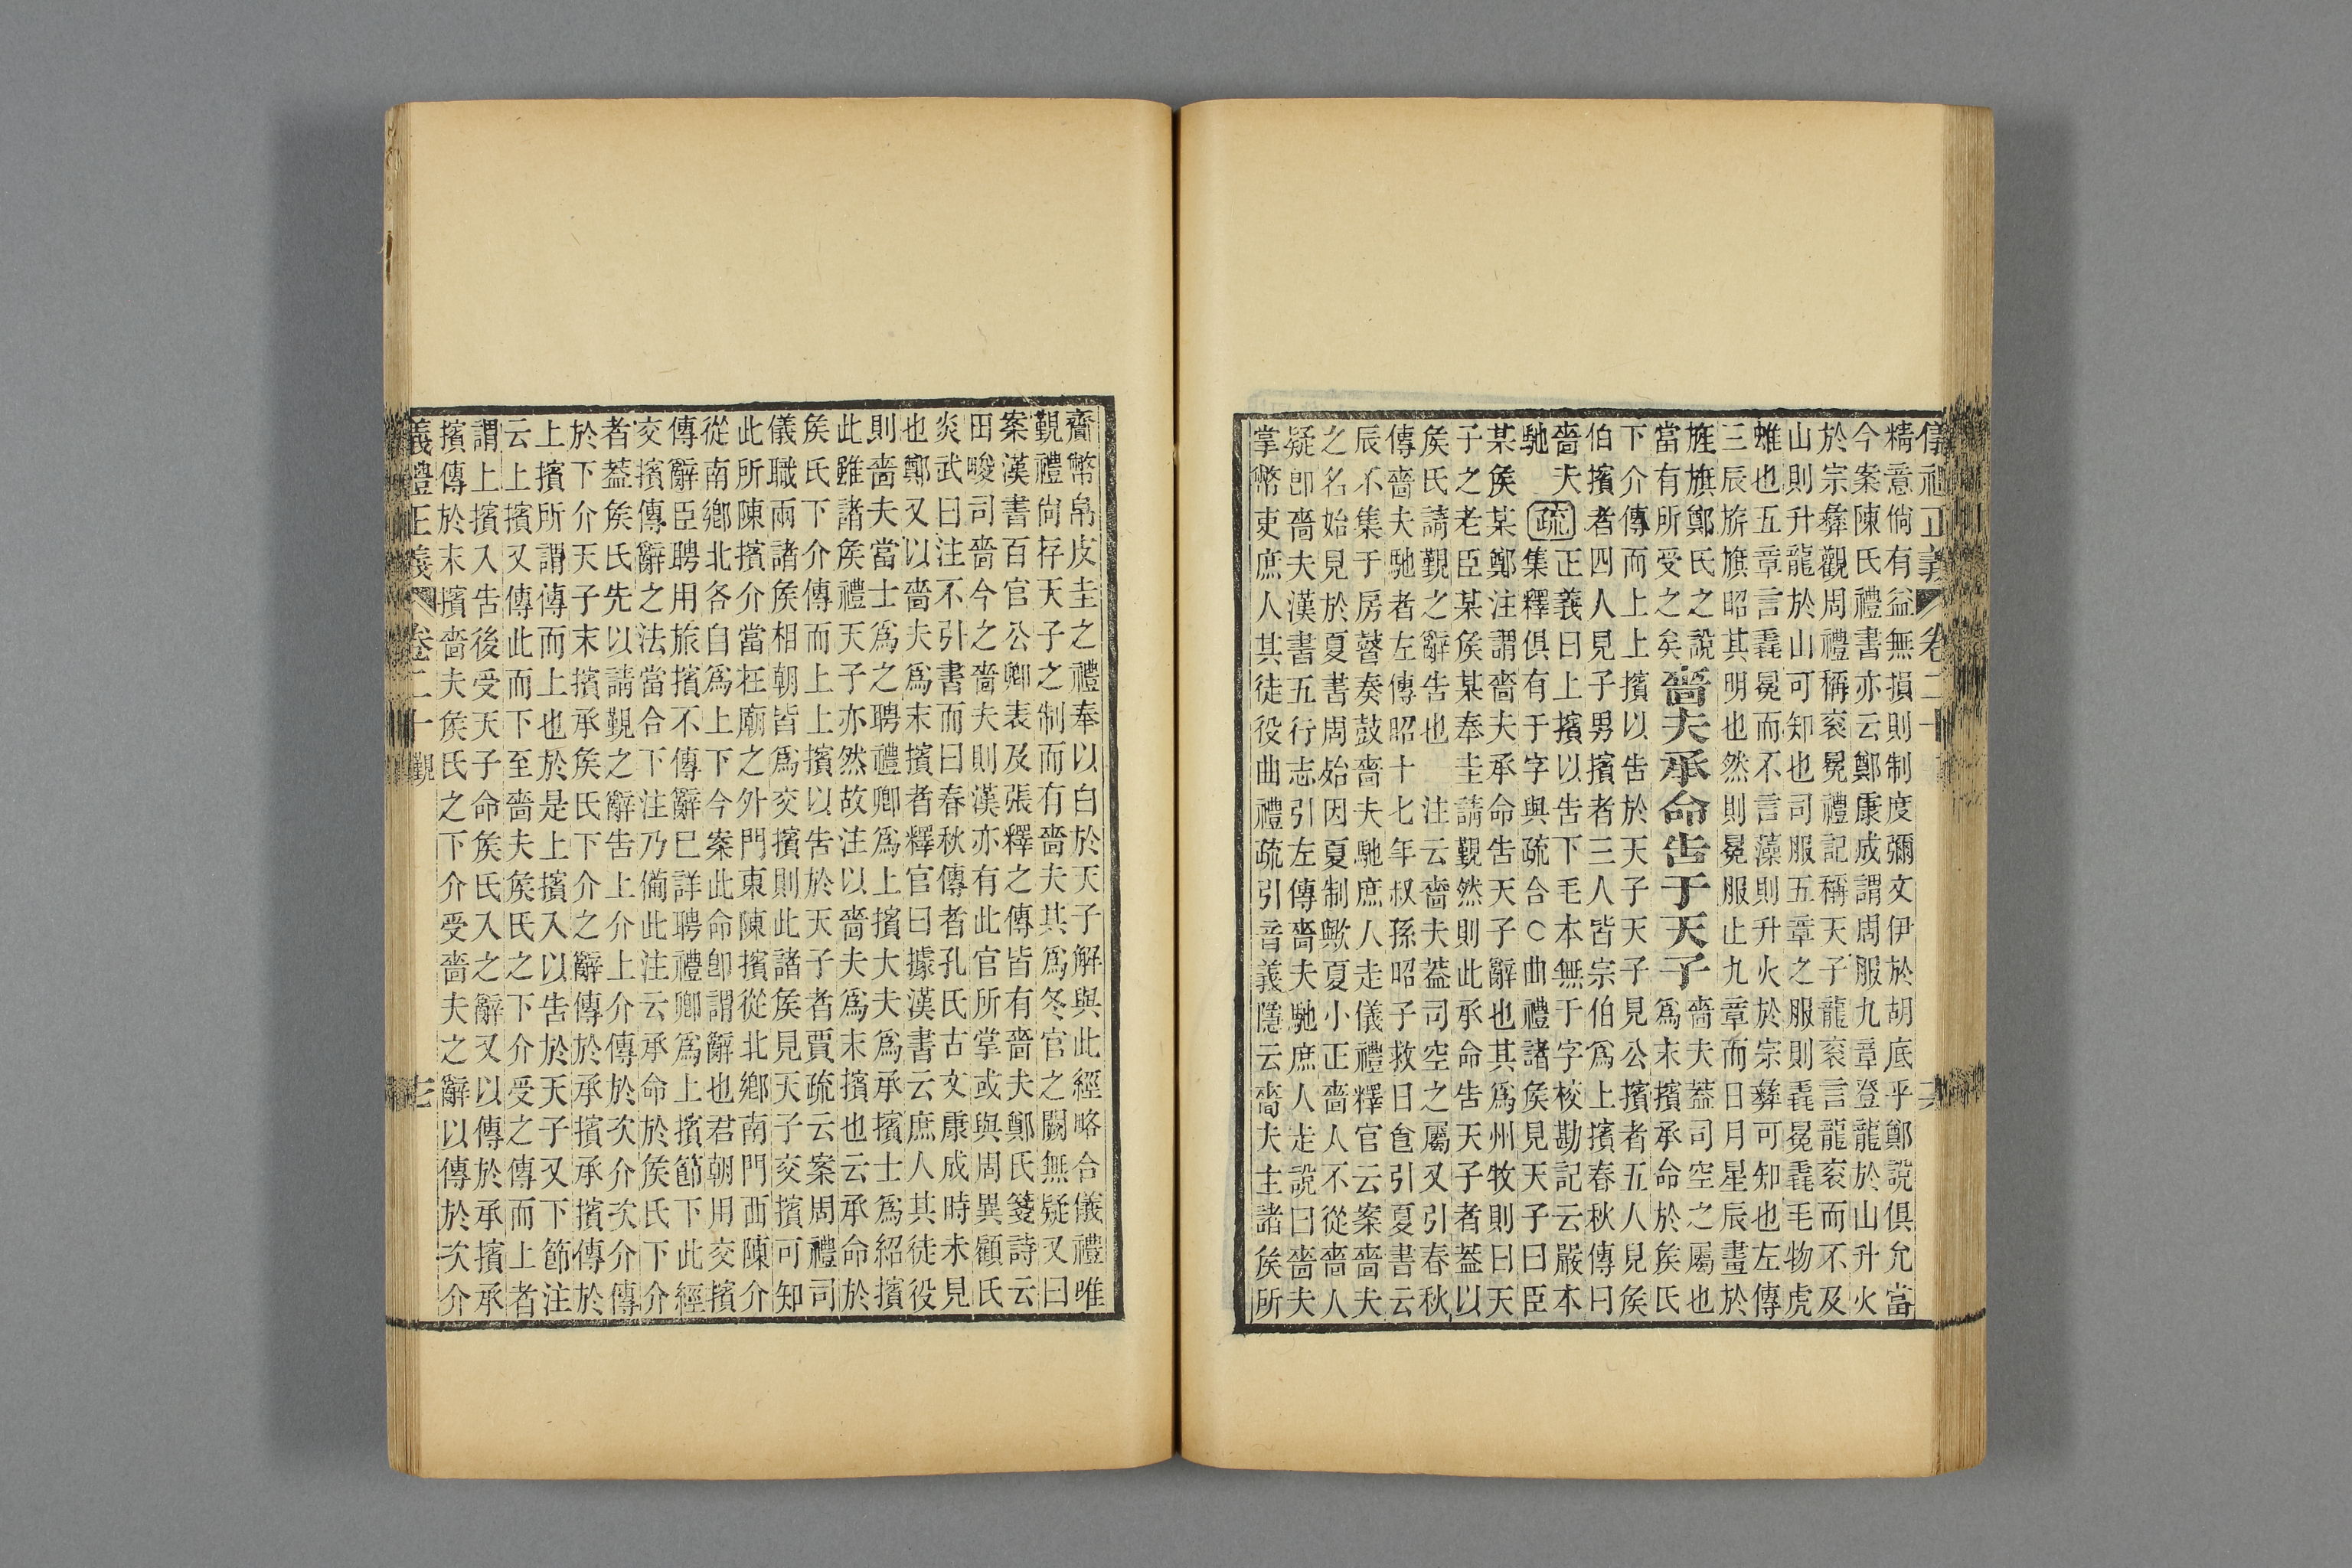 儀禮正義 卷二十
精意倘有益無損則制度彌文伊於胡底乎鄭說俱允當
今案陳氏禮書亦云鄭康成謂周服九章登龍於山升火
於宗彝觀周禮稱衮冕禮記稱天子龍衮言龍衮而不及
山則升龍於山可知也司服五章之服則毳冕毳毛物虎
蜼也五章言毳冕而不言藻則升火於宗彝可知也左傳
三辰旂旗昭其明也然則冕服止九章而日月星辰畫於
旌旗鄭氏之說
當有所受之矣
嗇夫承命告于天子
嗇夫蓋司空之屬也
爲末擯承命於矦氏
下介傳而上上擯以告於天子天子見公擯者五人見矦
伯擯者四人見子男擯者三人皆宗伯爲上擯春秋傳曰
嗇夫
馳
疏
正義曰上擯以告下毛本無于字校勘記云嚴本
集釋俱有于字與疏合○曲禮諸矦見天子曰臣
某矦某鄭注謂嗇夫承命告天子辭也其爲州牧則曰天
子之老臣某矦某奉圭請覲然則此承命告天子者蓋以
矦氏請覲之辭告也 注云嗇夫蓋司空之屬又引春秋
傳嗇夫馳者左傳昭十七年叔孫昭子救日食引夏書云
辰不集于房瞽奏鼓嗇夫馳庶人走儀禮釋官云案嗇夫
之名始見於夏書周始因夏制歟夏小正嗇人不從嗇人
疑卽嗇夫漢書五行志引左傳嗇夫馳庶人走說曰嗇夫
掌幣吏庶人其徒役曲禮疏引音義隱云嗇夫主諸矦所
齎幣帛皮圭之禮奉以白於天子解與此經略合儀禮唯
覲禮尙存天子之制而有嗇夫其爲冬官之闕無疑又曰
案漢書百官公卿表及張釋之傳皆有嗇夫鄭氏箋詩云
田畯司嗇今之嗇夫則漢亦有此官所掌或與周異顧氏
炎武曰注不引書而曰春秋傳者孔氏古文康成時未見
也鄭又以嗇夫爲末擯者釋官曰據漢書云庶人其徒役
則嗇夫當士爲之聘禮卿爲上擯大夫爲承擯士爲紹擯
此雖諸矦禮天子亦然故注以嗇夫爲末擯也云承命於
矦氏下介傳而上上擯以告於天子者賈疏云案周禮司
儀職兩諸矦相朝皆爲交擯則此諸矦見天子交擯可知
此所陳擯介當在廟之外門東陳擯從北鄉南門西陳介
從南鄉北各自爲上下今案此命卽謂辭也君朝用交擯
傳辭臣聘用旅擯不傳辭已詳聘禮卿爲上擯節下此經
交擯傳辭之法當合下注乃備此注云承命於矦氏下介
者蓋矦氏先以請覲之辭告上介上介傳於次介次介傳
於下介天子末擯承矦氏下介之辭傳於承擯承擯傳於
上擯所謂傳而上也於是上擯入以告於天子又下節注
云上擯又傳此而下至嗇夫矦氏之下介受之傳而上者
謂上擯入告後受天子命矦氏入之辭又以傳於承擯承
擯傳於末擯嗇夫矦氏之下介受嗇夫之辭以傳於次介
儀禮正義 卷二十 覲